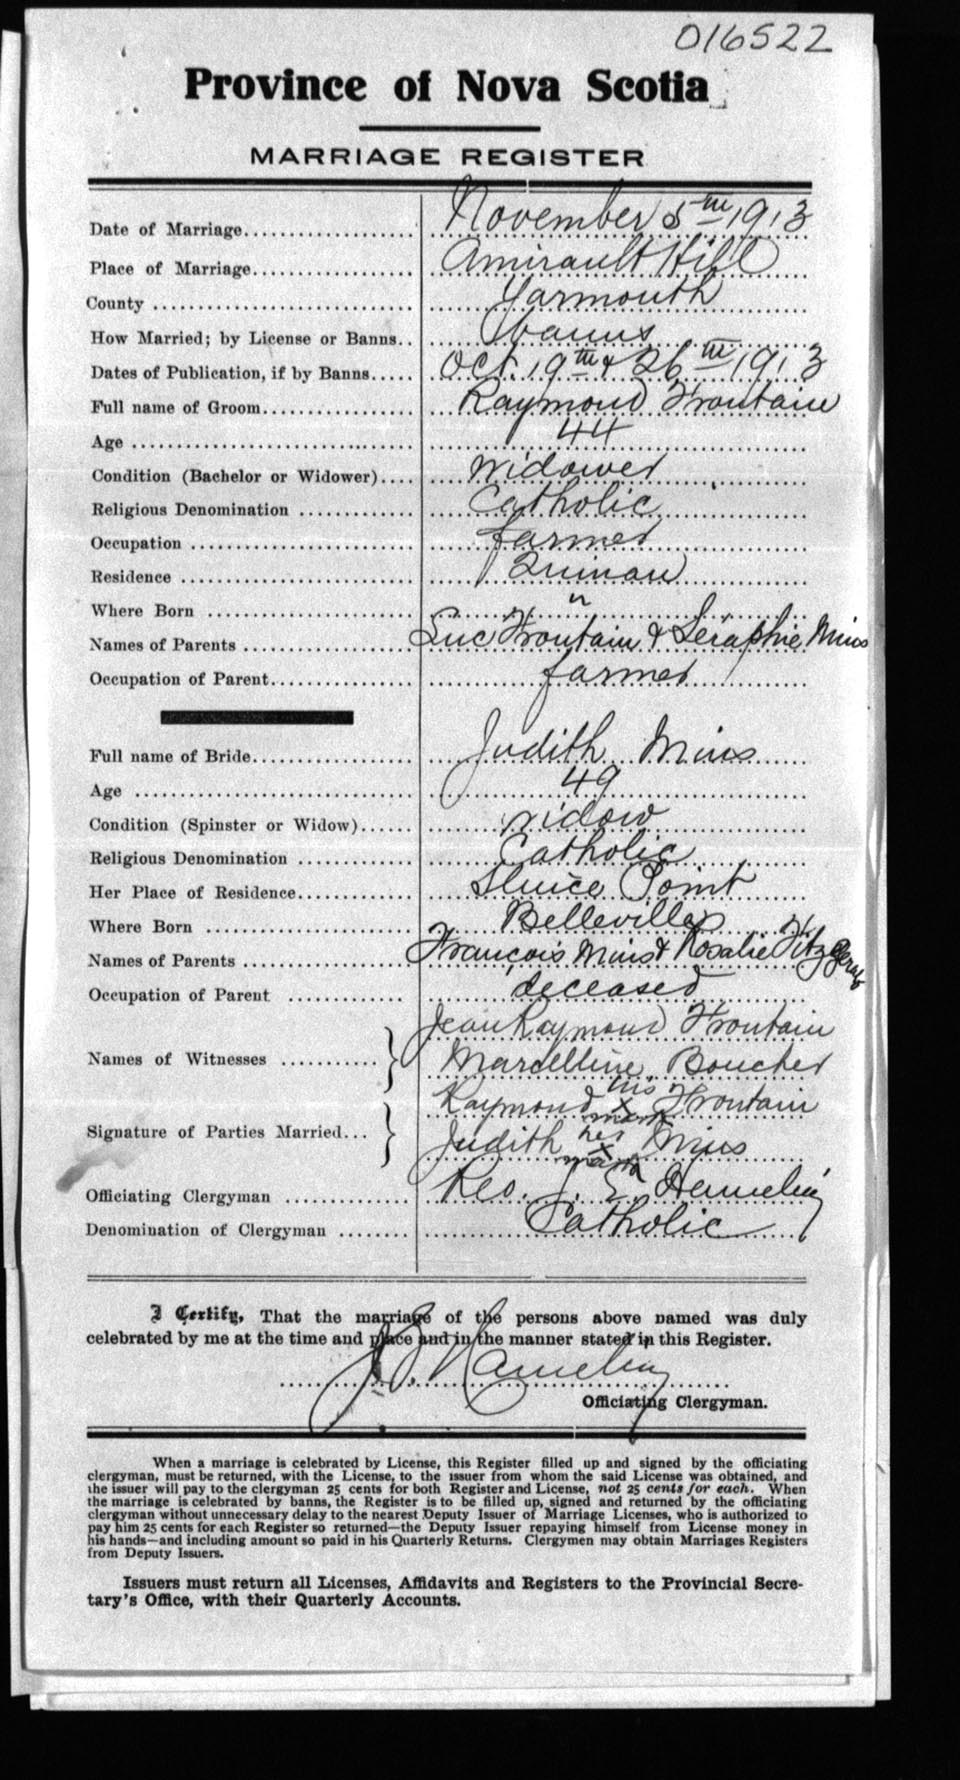 016522
Province of Nova Scotia
MARRIAGE REGISTER
Date of Marriage November 5th 1913
Place of Marriage Amirault Hill
County Yarmouth
How Married; by License or Banns banns
Dates of Publication, if by Banns Oct. 19th & 26th 1913
Full name of Groom Raymond Frontain
Age 44
Condition (Bachelor or Widower) widower
Religious Denomination Catholic
Occupation farmer
Residence Quinan
Where Born "
Names of Parents Luc Frontain & Séraphie Mius
Occupation of Parent farmer
Full name of Bride Judith Mius
Age 49
Condition (Spinster or Widow) widow
Religious Denomination Catholic
Her Place of Residence Sluice Point
Where Born Belleville
Names of Parents François Mius & Rosalie Fitzgerald
Occupation of Parent deceased
Names of Witnesses Jean Raymond Frontain
Marcelline Boucher
Signature of Parties Married Raymond his x mark Frontain
Judith her x mark Mius
Officiating Clergyman Rev. J. E. Hamelin
Denomination of Clergyman Catholic
I Certify, That the marriage of the persons above named was duly
celebrated by me at the time and place and in the manner stated in this Register.
J. E. Hamelin
Officiating Clergyman.
When a marriage is celebrated by License, this Register filled up and signed by the officiating
clergyman, must be returned, with the License, to the issuer from whom the said License was obtained, and
the issuer will pay to the clergyman 25 cents for both Register and License, not 25 cents for each. When
the marriage is celebrated by banns, the Register is to be filled up, signed and returned by the officiating
clergyman without unnecessary delay to the nearest Deputy Issuer of Marriage Licenses, who is authorized to
pay him 25 cents for each Register so returned—the Deputy Issuer repaying himself from License money in
his hands—and including amount so paid in his Quarterly Returns. Clergymen may obtain Marriages Registers
from Deputy Issuers.
Issuers must return all Licenses, Affidavits and Registers to the Provincial Secre-
tary's Office, with their Quarterly Accounts.